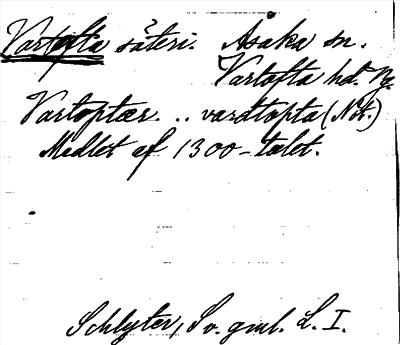 Vartofta säteri. Åsaka sn.
Vartofta hd. Vg.
Vartoptær .. vardtopta (Not.)
Medlet af 1300-talet.
Schlyter, Sv. gml. L. I.